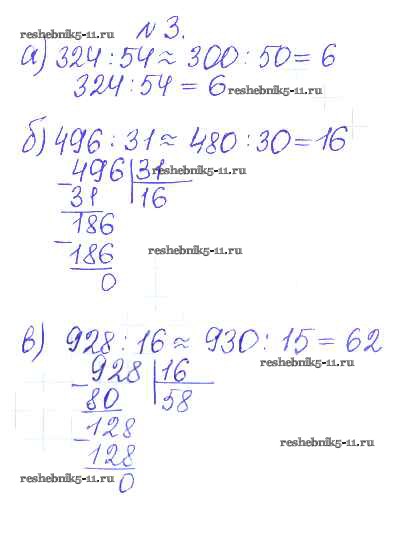 reshebnik5-11.ru № 3.
а) 324 : 54 ≈ 300 : 50 = 6
324 : 54 = 6 reshebnik5-11.ru
б) 496 : 31 ≈ 480 : 30 = 16
496 | 31 reshebnik5-11.ru
31 | 16
186
186 reshebnik5-11.ru
0
в) 928 : 16 ≈ 930 : 15 = 62
reshebnik5-11.ru
928 | 16
80 | 58
128
reshebnik5-11.ru
128
reshebnik5-11.ru 0